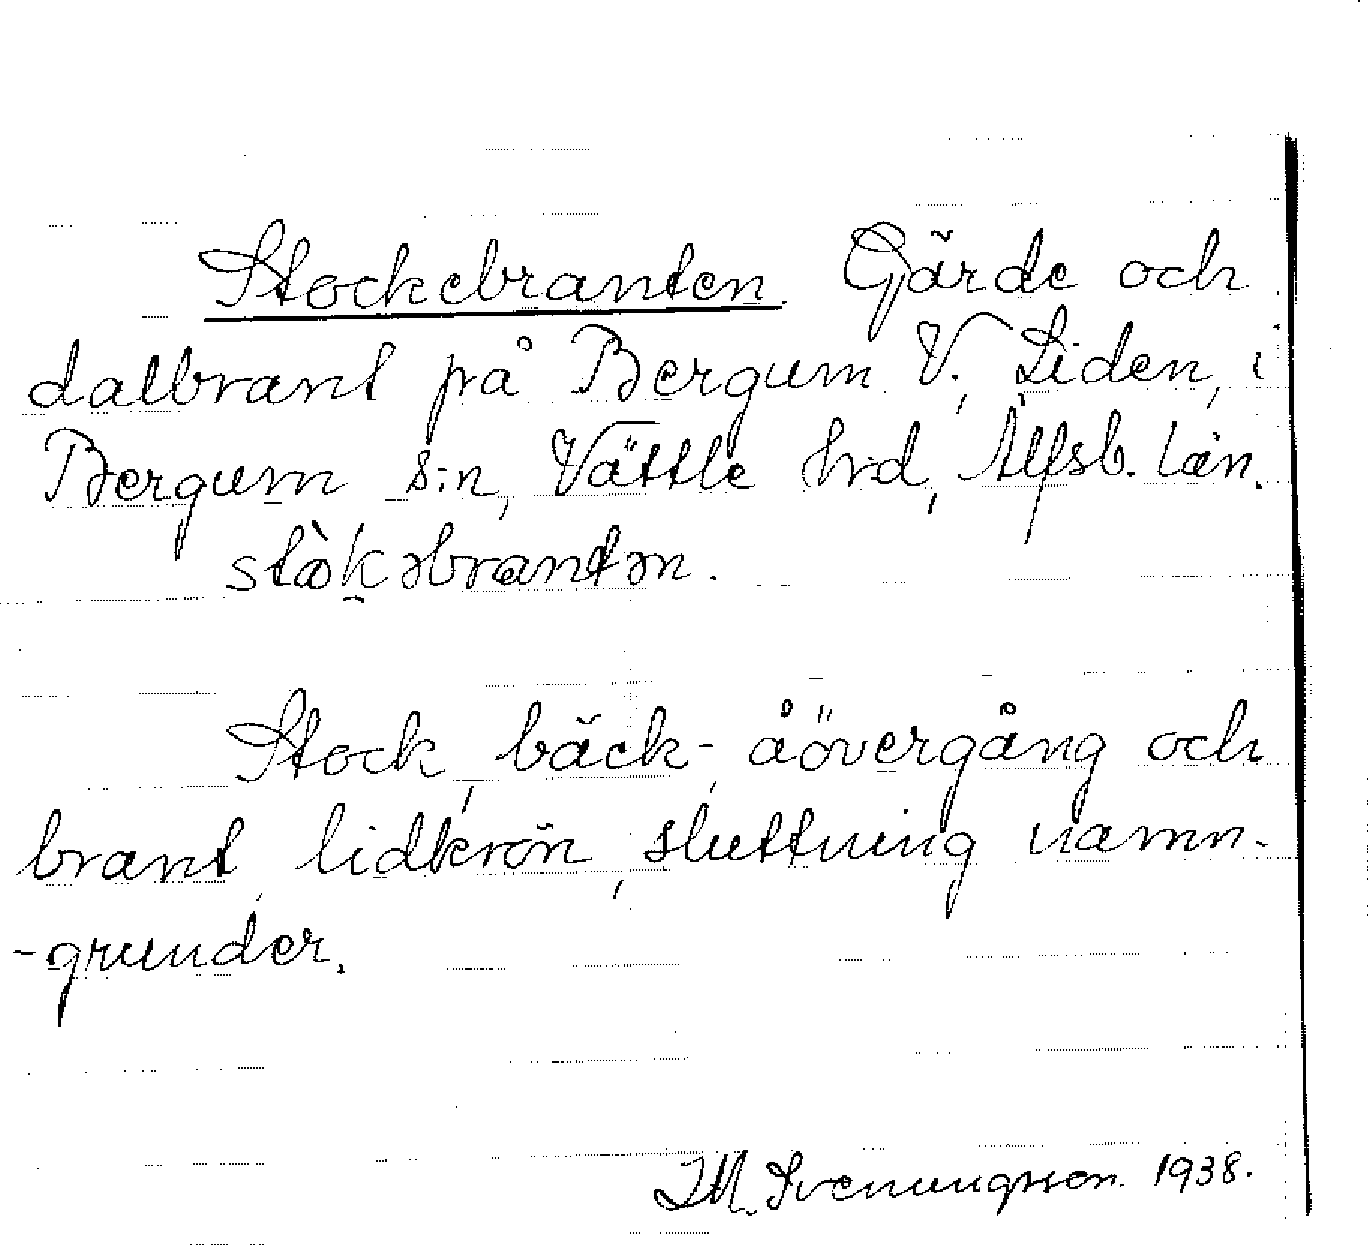 Stockebranten. Gärde och
dalbrant på Bergum V., Liden, i
Bergum s:n, Vättle hrd, Älfsb. län.
stòk̯əbrantən.
Stock, bäck-, åövergång och
brant, lidkrön, sluttning namn-
-grunder.
I M. Svenungsson 1938.